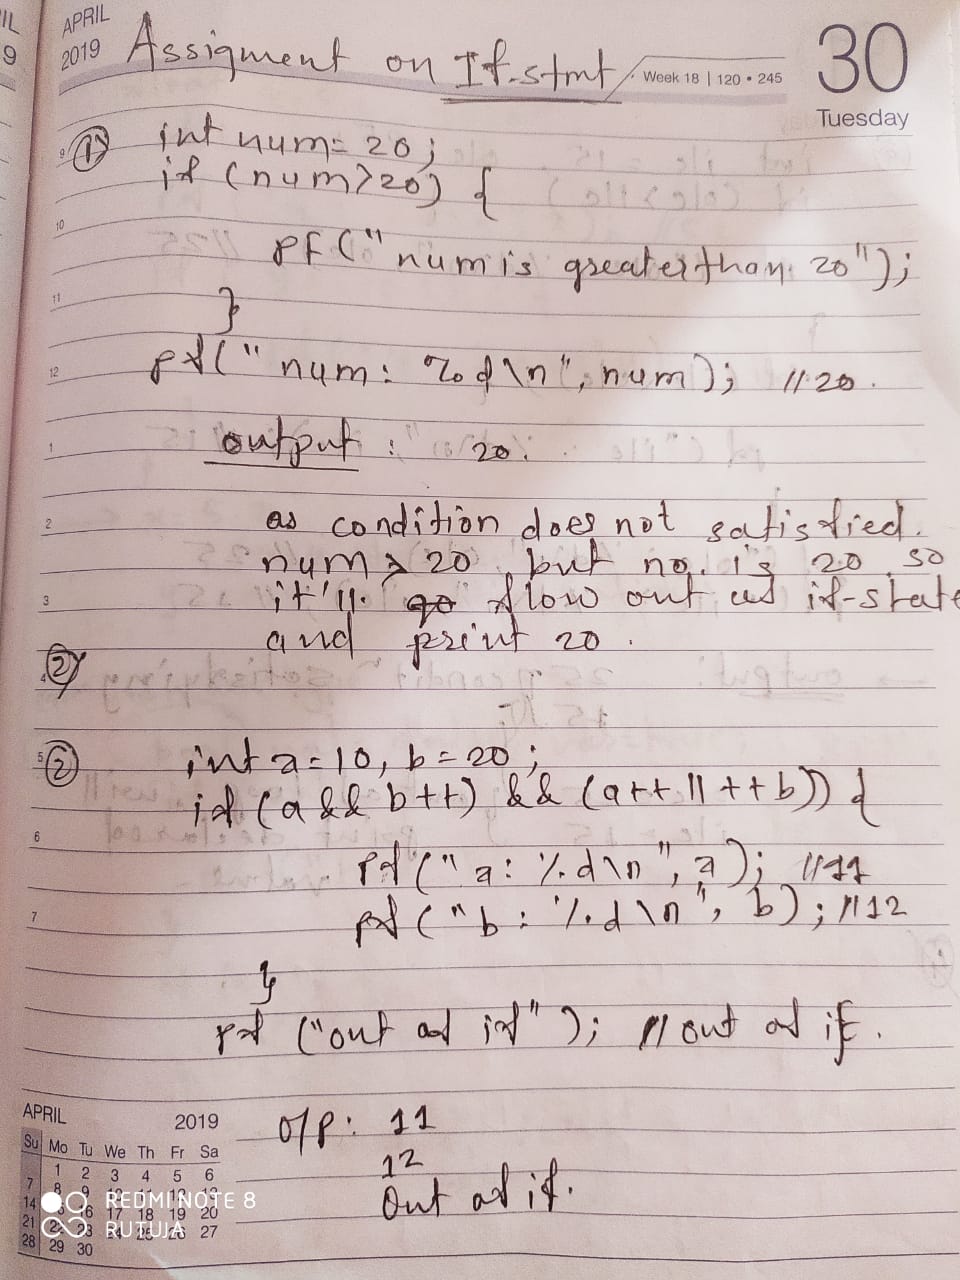 IL
9
APRIL
2019
Assigment on If-stmt
Week 18 | 120 • 245
30
Tuesday
① int num = 20;
9
if (num>20) {
10
pf("num is greater than 20");
11
}
12
pf("num: %d\n", num); //20.
1
output : 20.
2
as condition does not satisfied.
num > 20, but no. is 20 so
3
it'll go flow out of if-state
and print 20.
②
4
5
② int a=10, b=20;
if (a && b++) && (a++ || ++b)) {
6
pf("a: %d\n", a); //11
7
pf("b: %d\n", b); //12
}
pf ("out of if"); // out of if.
O/P: 11
12
Out of if.
APRIL 2019
Su Mo Tu We Th Fr Sa
1 2 3 4 5 6
7 8 9
14 16 17 18 19 20
21 22 23 24 25 26 27
28 29 30
REDMI NOTE 8
RUTUJA